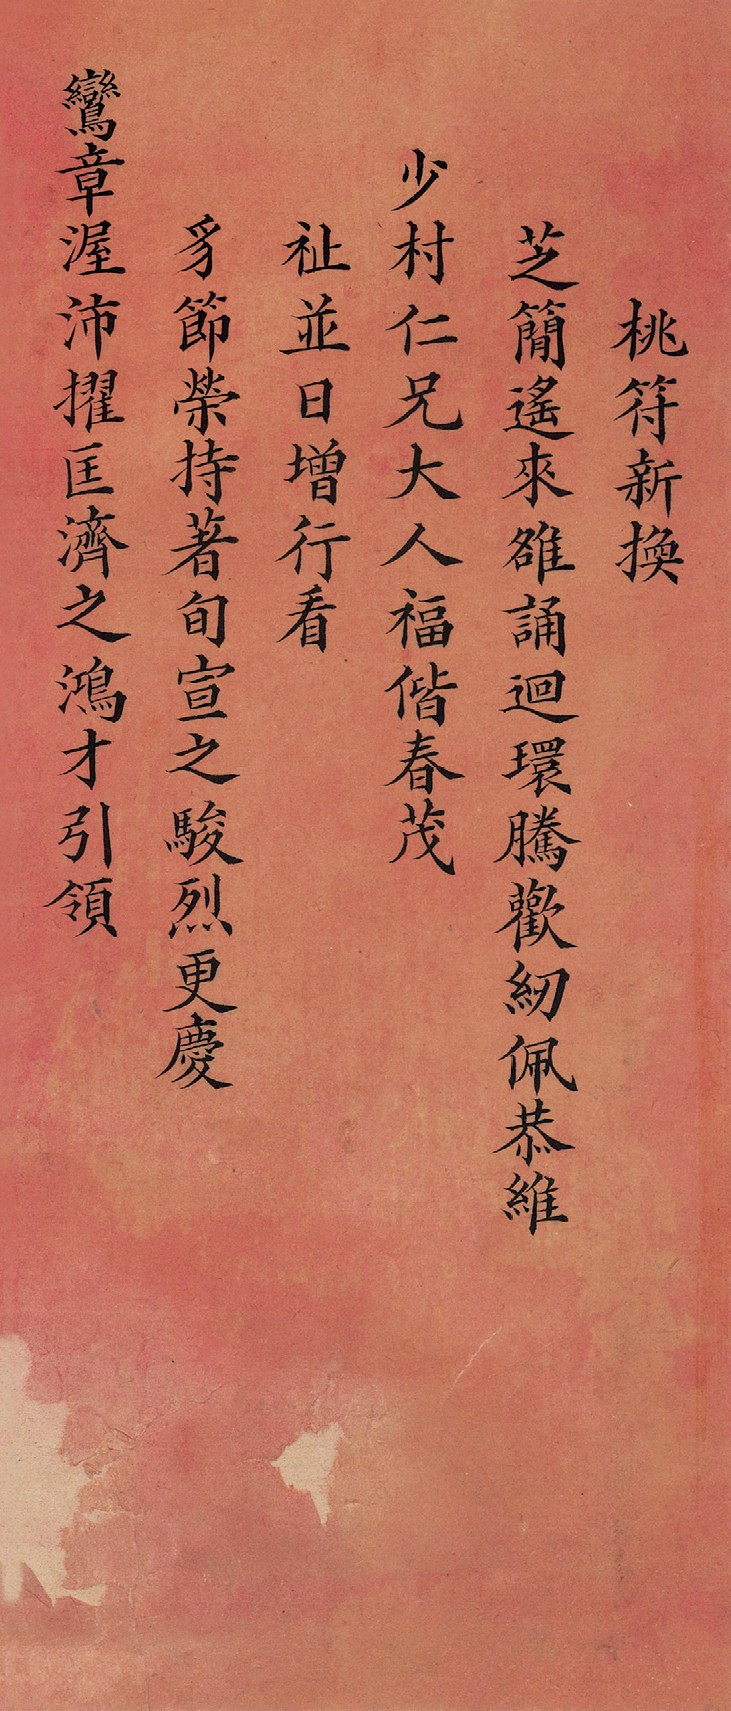 桃符新換
芝簡遙來雒誦迴環騰歡紉佩恭維
少村仁兄大人福偕春茂
祉並日增行看
豸節榮持著旬宣之駿烈更慶
鸞章渥沛擢匡濟之鴻才引領